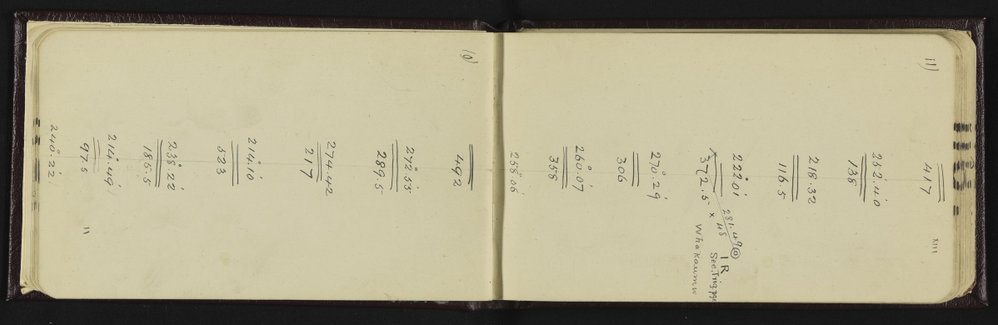 11) XIII
417
252°.40'
138
218.32
116.5
222°01' 281.49 1 R
372.5 x 48
Whakaumu
270.29'
306
260°.07'
358
258°.06
10)
492
272°.55'
289.5
274.42
217
214°.10
323
238°.22'
185.5
214°.49'
97.5 11
240°.22'